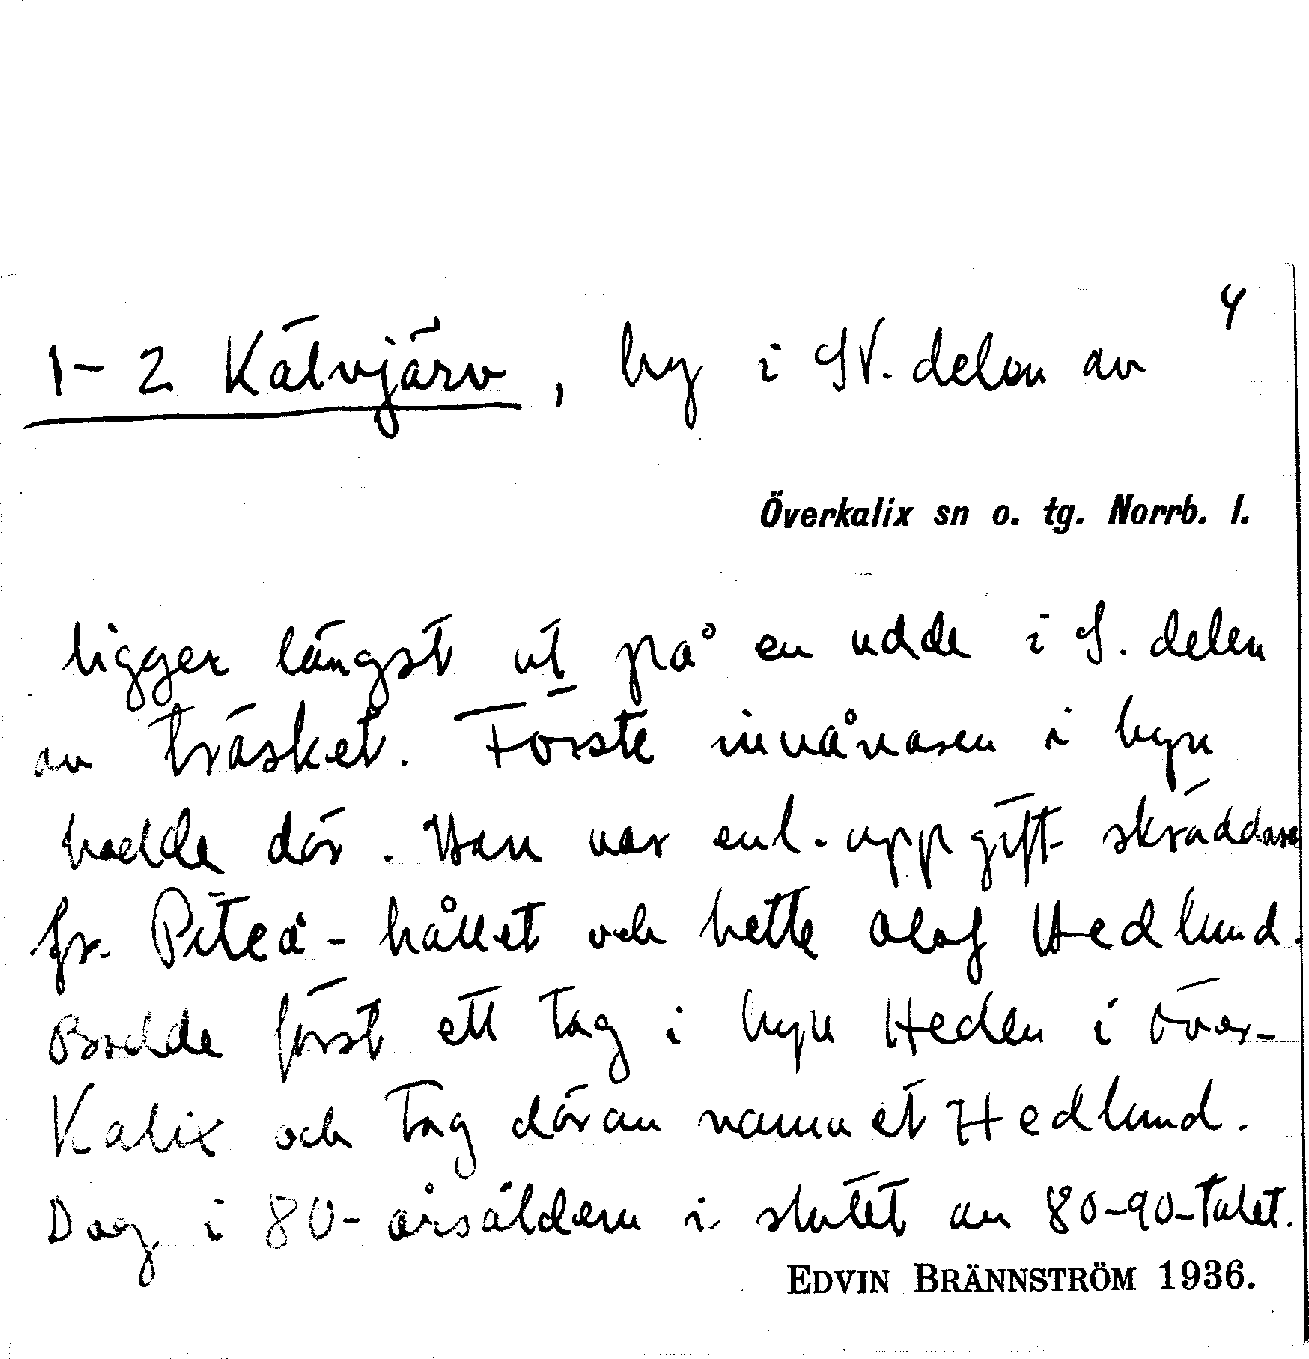 4
1-2 Kälvjärv, by i SV. delen av
Överkalix sn o. tg. Norrb. l.
ligger längst ut på en udde i S. delen
av träsket. Förste invånaren i byn
bodde där. Han var enl. uppgift skräddare
fr. Piteå-hållet och hette Olof Hedlund.
Bodde först ett tag i byn Heden i Över-
Kalix och tog därav namnet Hedlund.
Dog i 80-årsåldern i slutet av 80-90-talet.
EDVIN BRÄNNSTRÖM 1936.